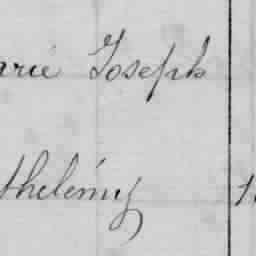 arie Joseph
thelémy 1